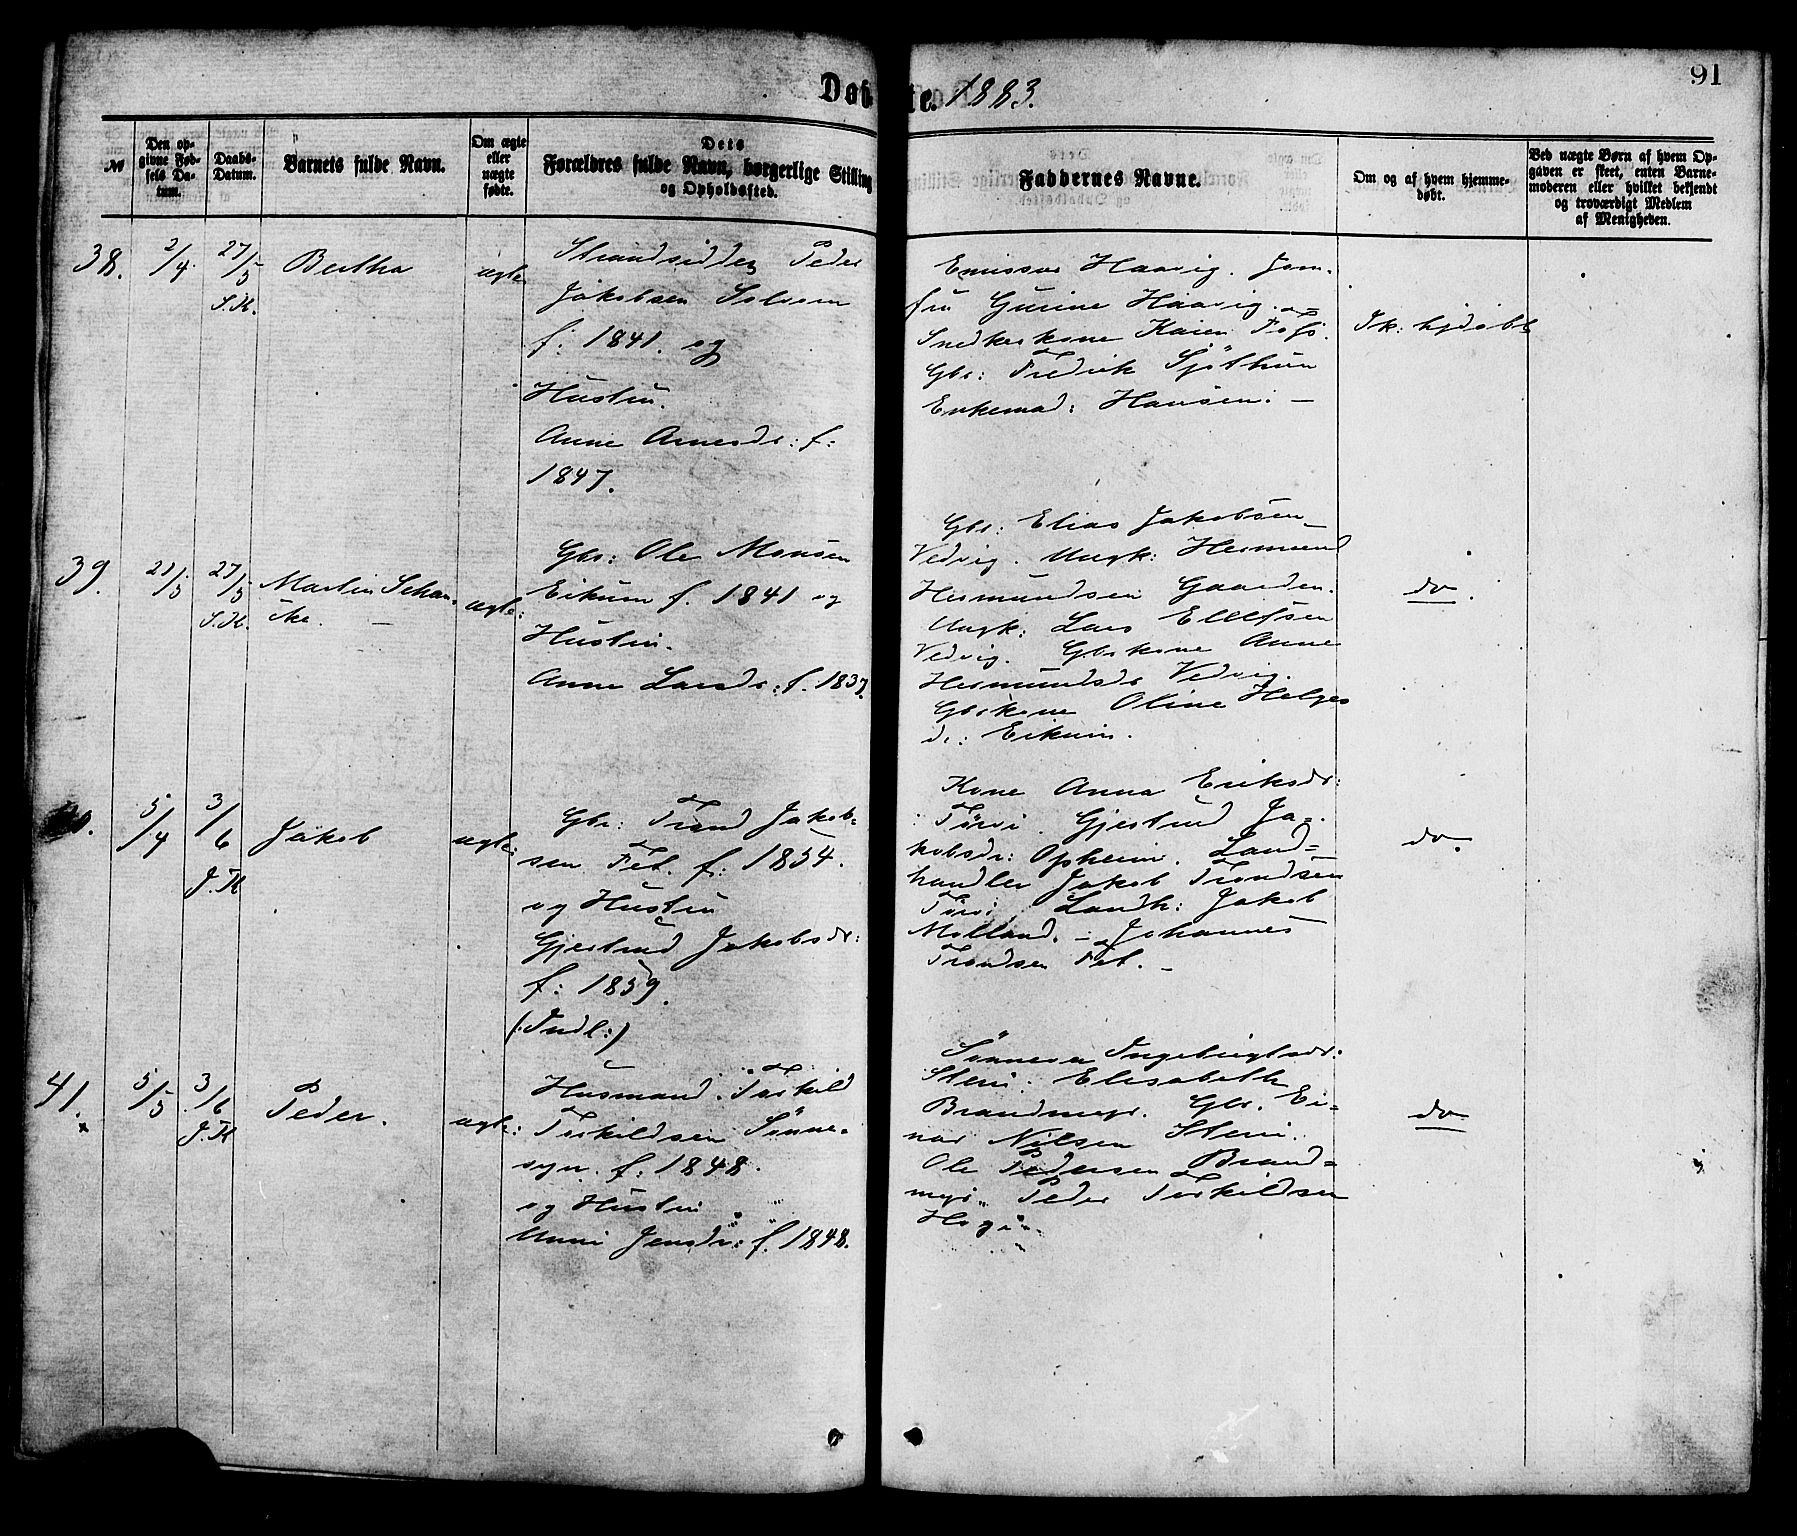 Døbte. 1883.
91
№
Den op-
givne Fød-
sels Da-
tum.
Daabs-
Datum.
Barnets fulde Navn.
Om ægte
eller
uægte
født.
Dets
Forældres fulde Navn, borgerlige Stilling
og Opholdssted.
Faddernes Navne.
Om og af hvem hjemme-
døbt.
Ved uægte Børn af hvem Op-
gaven er skeet, enten Barne-
moderen eller hvilket bekjendt
og troværdigt Medlem
af Menigheden.
38.
2/4
27/5
S.K.
Bertha
ægte
Strandsidder Peder
Jakobsen Solvorn
f: 1841. og
Hustru.
Anne Arnesdr: f:
1847.
Emissær Haavig. Jom-
fru Gurine Haavig.
Snedkerkone Karen Fos.
Gbr: Fredrik Sjøthun
Enkemad: Hansen. –
Ik: hjdøbt
39.
21/3
27/5
S.K.
Martin Schan-
che. –
ægte:
Gbr: Ole Monsen
Eikum f. 1841 og
Hustru.
Anne Larsdr: f. 1837.
Gbr: Elias Jakobsen
Vedvig. Ungk: Hermund
Hermundsen Gaarden.
Ungk: Lars Ellefsen
Vedvig. Gbrkone Anne
Hermundsdr Vedvig.
Gbrkone Oline Helges
dr: Eikum.
do.
40.
5/4
3/6
J.K
Jakob
ægte:
Gbr: Trond Jakob-
sen Fet. f: 1854.
og Hustru
Gjertrud Jakobsdr:
f: 1859.
(:Indl:)
Kone Anna Eriksdr:
Tørvi. Gjertrud Ja-
kobsdr: Opheim. Land-
handler Jakob Trondsen
Tørvi Landh: Jakob
Molland. – Johannes
Trondsen Fet. –
do.
41.
x
5/5
3/6
J.K
Peder.
ægte:
Husmand Torkild
Torkildsen Sønne-
søyn. f. 1848.
og Hustru
Unni Jensdr: f. 1848.
Sønneva Ingebrigtsdr:
Steni. Elisabeth
Brandmyr. Gbr. Ei-
nar Nilsen Steni.
Ole Pedersen Brand-
myr. Peder Torkildsen
do